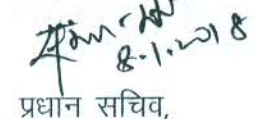 8.1.2018
प्रधान सचिव,